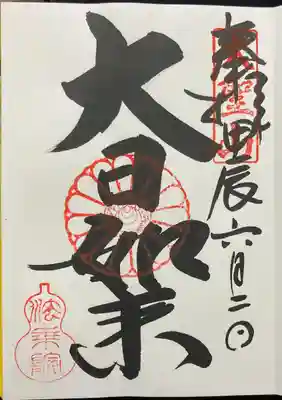 奉拝 甲辰六月二日
大日如来
法乗院